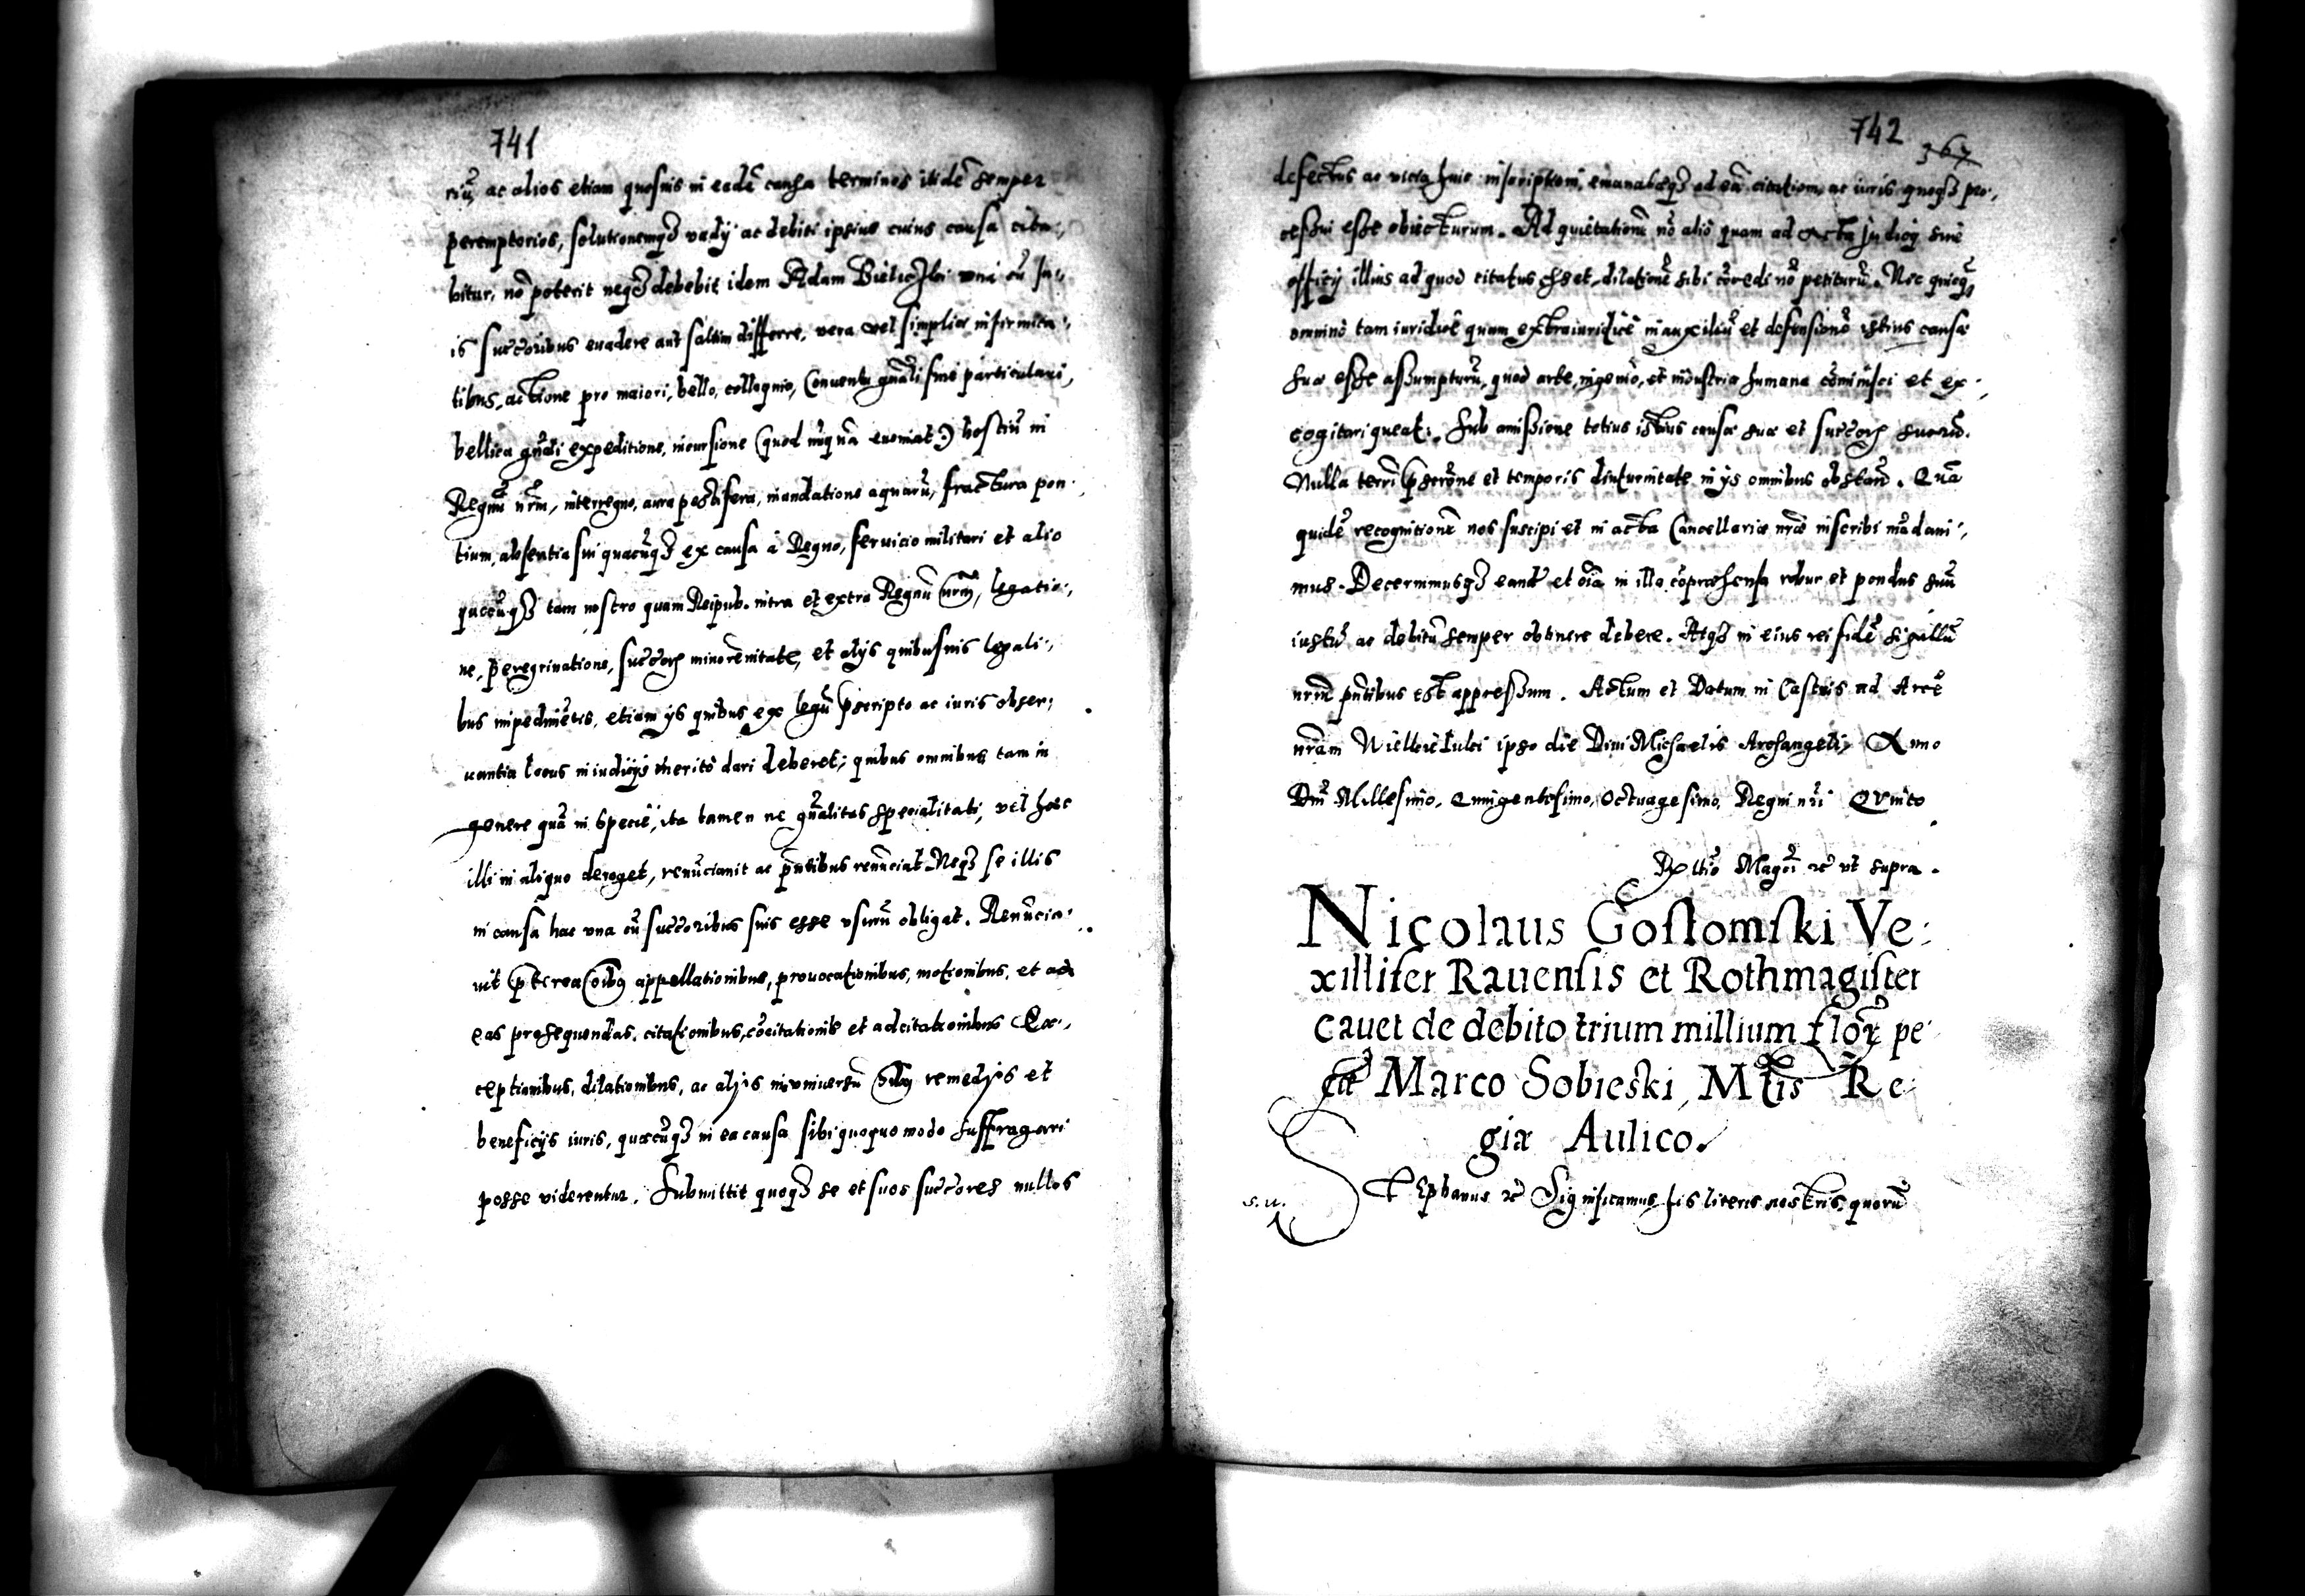 741
riū ac alios etiam quosuis in eadē causa terminos itidē semper
peremptorios, solutionemq₃ vadij ac debiti ipsius cuius causa cita:,
bitur, nō poterit neq₃ debebit idem Adam una cū su:,
is succoribus euadere aut saltim differre, vera vel simplici infirmita:,
tibus, actione pro maiori, bello, colloquio, Conuentu gnāli siue particulari,
bellica gnāli expeditione, incursione (quod nūquā eueniat) hostiū in
Regnū nrm̄, interregno, aura pestifera, inundatione aquarū, fractura pon:,
tium, absentia sui quacūq₃ ex causa à Regno, seruicio militari et alio
quocūq₃ tam nostro quam Reipub. intra et extra Regnū nrm̄, legatio:,
ne, peregrinatione, succor₃ minorēnitate, et alijs quibusuis legali:,
bus impedimētis, etiam ijs quibus ex legū pscripto ac iuris obser:,
uantia locus in iudicijs meritò dari deberet; quibus omnibus tam in
genere quā in specie, ita tamen ne gnālitas specialitati, vel haec
illi in aliquo deroget, renūciauit ac pn̄tibus renūciat Neq₃ se illis
in causa hac una cū succoribus suis esse vsurū obligat. Renūcia:
uit pterea oībus appellationibus, prouocationibus, motionibus, et ad
eas prosequendas, citationibus, cōcitationib et adcitationibus Ex:,
ceptionibus, dilationibus, ac alijs in vniuersū oībus remedijs et
beneficijs iuris, quaecūq₃ in ea causa sibi quoquo modo suffragari
posse viderentur. Submittit quoq₃ se et suos succores nullos
742
367
defectus ac vicia huic inscriptioni, emanabitq₃ ad eā citationi, ac iuris quoq₃ pro:,
cessui esse obiecturum. Ad quietationē nō aliò quam ad Acta Judicij siue
officij illius ad quod citatus esset, dilationē sibi cōcedi nō petiturū. Nec quicq₃
omninò tam iuridicè quam extraiuridicè in auxiliū et defensionē istius causae
suae esse assumpturū, quod arte, ingenio, et industria humana cōminisci et ex:,
cogitari queat. Sub amissione totius istius causae suae et succor₃ suorū.
Nulla terrī pscrōne et temporis diuturnitate in ijs omnibus obstan̄. Quā
quidē recognitionē nos suscipi et in acta Cancellariae nrae inscribi mādaui:,
mus. Decernimusq₃ eandē et oīa in illa cōpraehensa robur et pondus suū
iustū ac debitū semper obtinere debere. Atq₃ in eius rei fidē sigillū
nrm̄ pn̄tibus est appressum. Actum et Datum in Castris ad Arcē
nram Wielkielukei ipso die Diui Michaelis Archangeli, Anno
Dnī Millesimo, Quingentesimo, Octuagesimo, Regni nrī Quinto
Rltīo Magci ꝛc̄ vt supra.
Nicolaus Gostomski Ve:
xillifer Rauensis et Rothmagister
cauet de debito trium millium flor₃ pe
cūe Marco Sobieski, Mtis Re:
giae Aulico.
s. u.
STEphanus ꝛc̄ Significamus his literis nostris, quorū